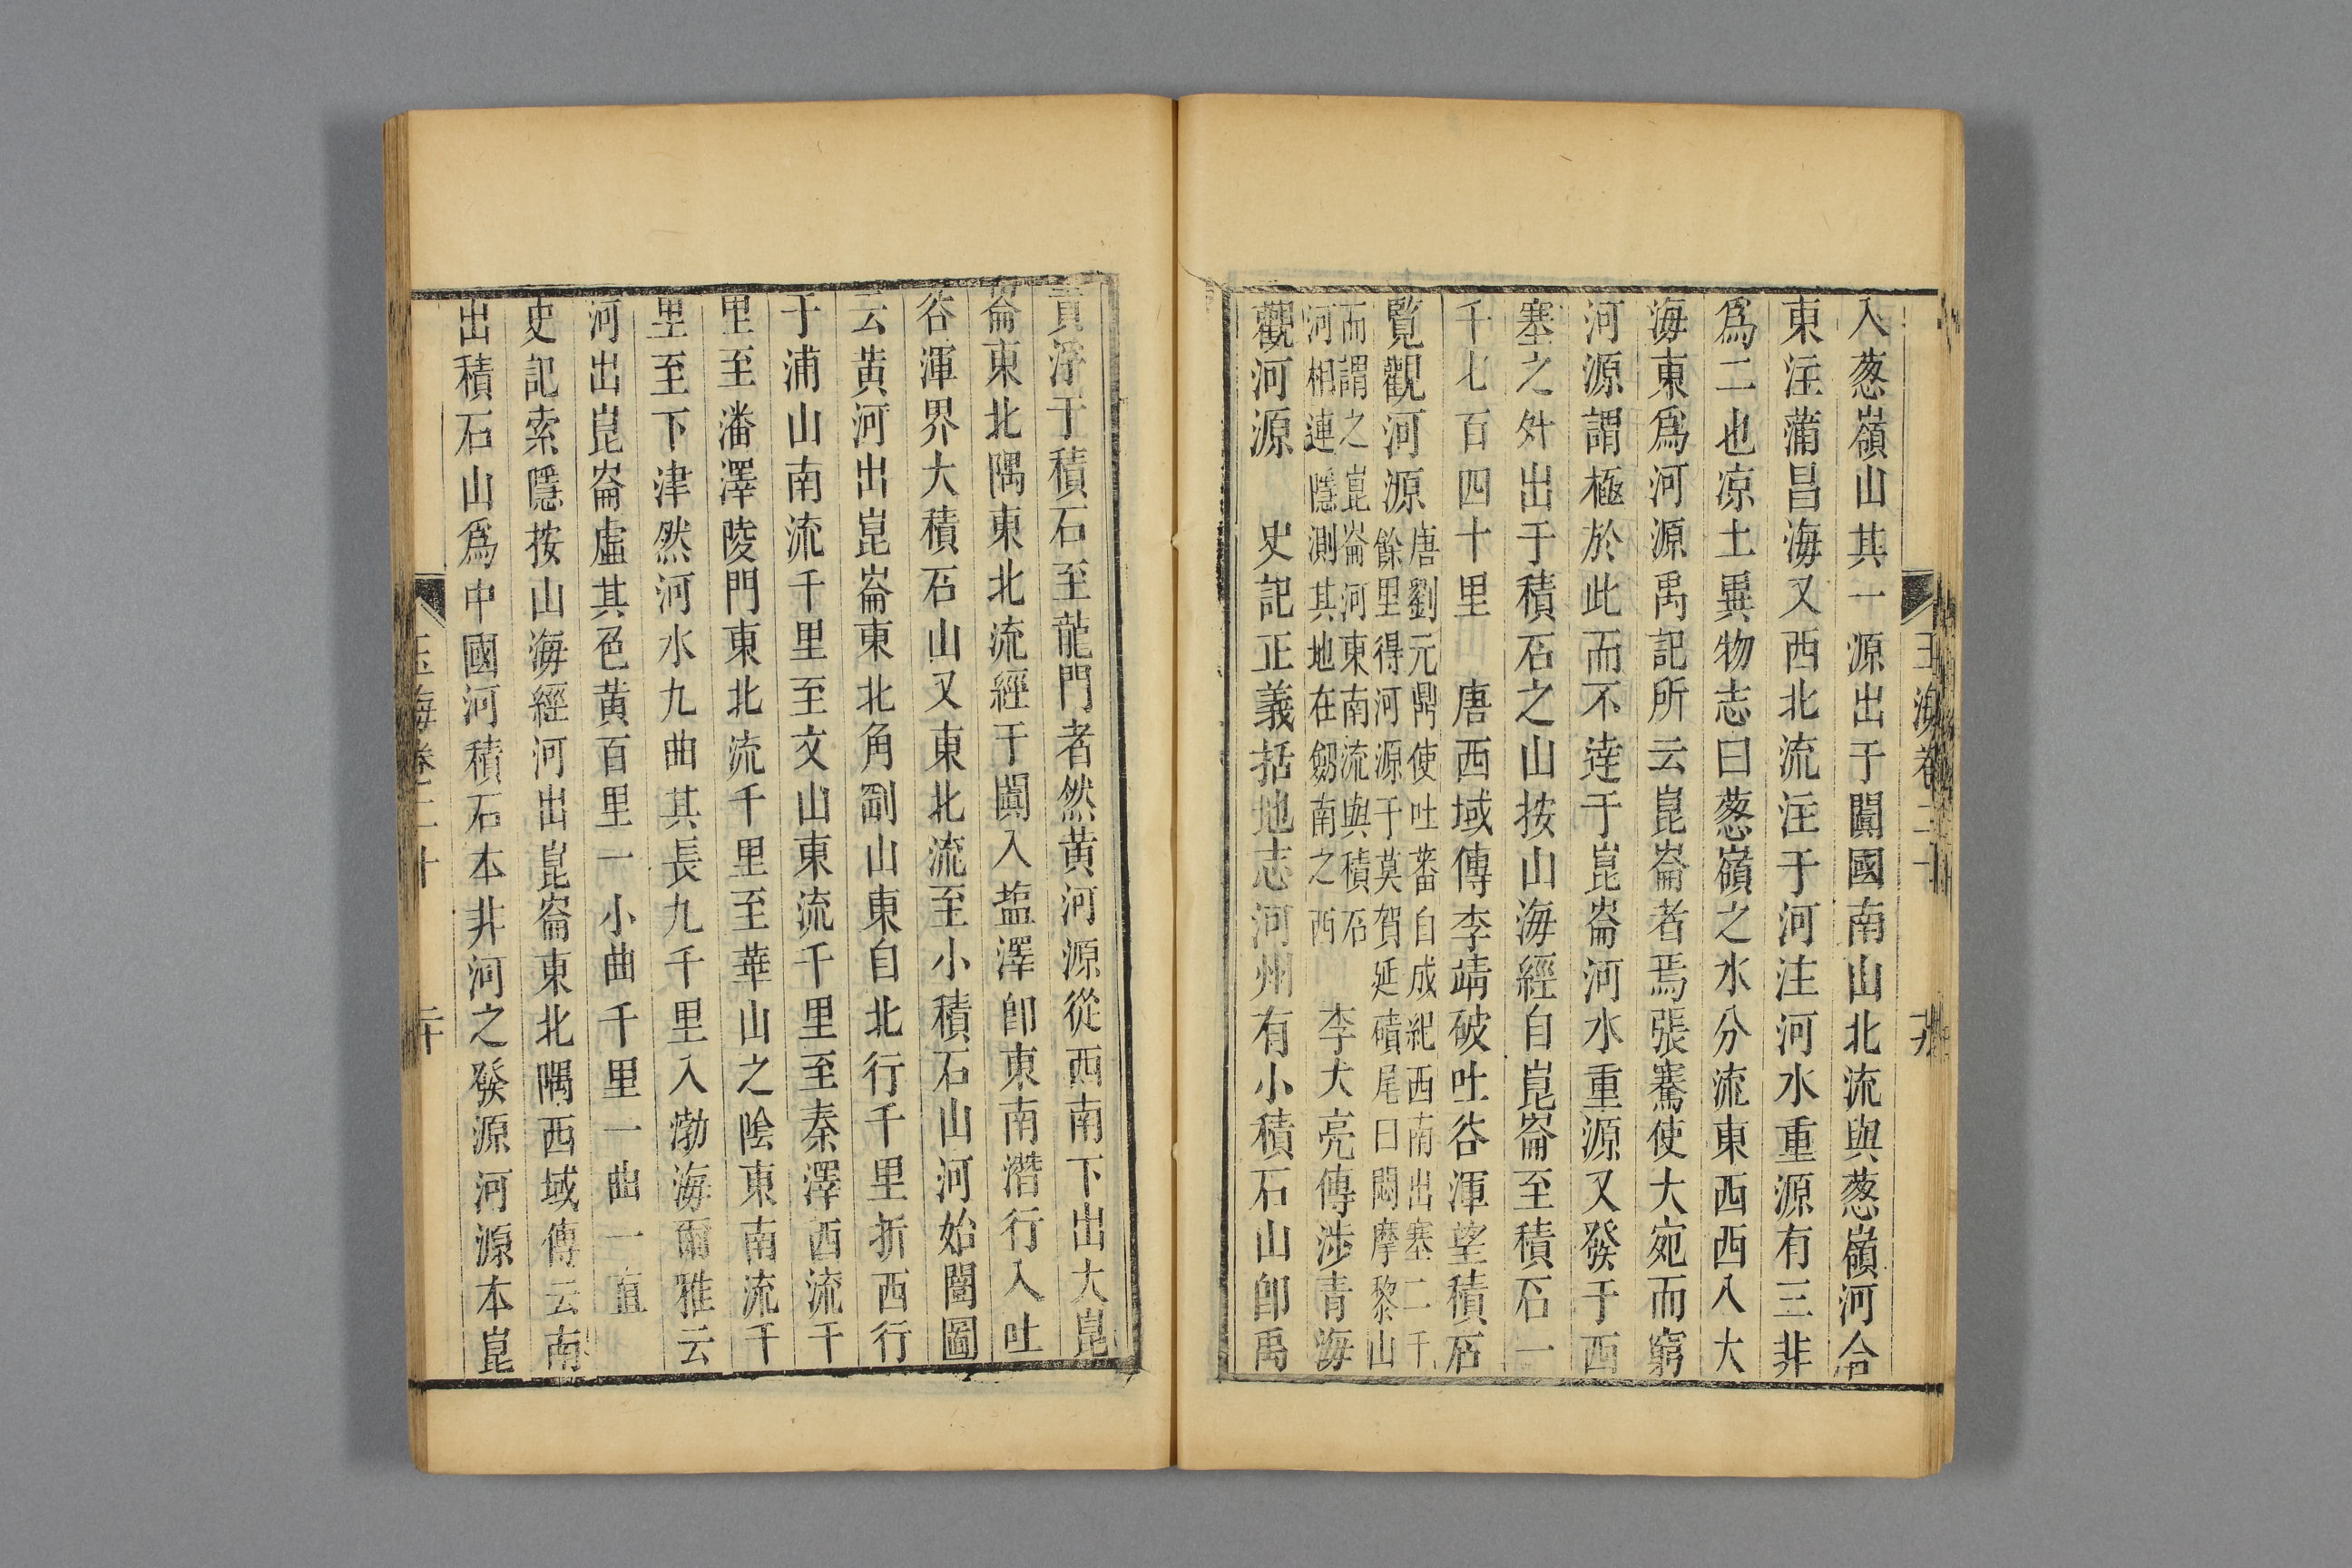 入葱嶺山其一源出于闐國南山北流與葱嶺河合
東注蒲昌海又西北流注于河注河水重源有三非
爲二也凉土異物志曰葱嶺之水分流東西西入大
海東爲河源禹記所云崑崙者焉張騫使大宛而窮
河源謂極於此而不逹于崑崙河水重源又發于西
塞之外出于積石之山按山海經自崑崙至積石一
千七百四十里　唐西域傳李靖破吐谷渾望積石
覧觀河源唐劉元鼎使吐蕃自成紀西南出塞二千
餘里得河源于莫賀延磧尾曰悶摩黎山
而謂之崑崙河東南流與積石
河相連隱測其地在劔南之西　李大亮傳涉青海
觀河源　史記正義括地志河州有小積石山卽禹
玉海卷二十
貢浮于積石至龍門者然黄河源從西南下出大崑
崙東北隅東北流經于闐入塩澤卽東南潛行入吐
谷渾界大積石山又東北流至小積石山河始闓圖
云黄河出崑崙東北角剛山東自北行千里折西行
于浦山南流千里至文山東流千里至秦澤西流千
里至潘澤陵門東北流千里至華山之陰東南流千
里至下津然河水九曲其長九千里入渤海爾雅云
河出崑崙虛其色黄百里一小曲千里一曲一直
史記索隱按山海經河出崑崙東北隅西域傳云南
出積石山爲中國河積石本非河之發源河源本崑
玉海卷二十　二十